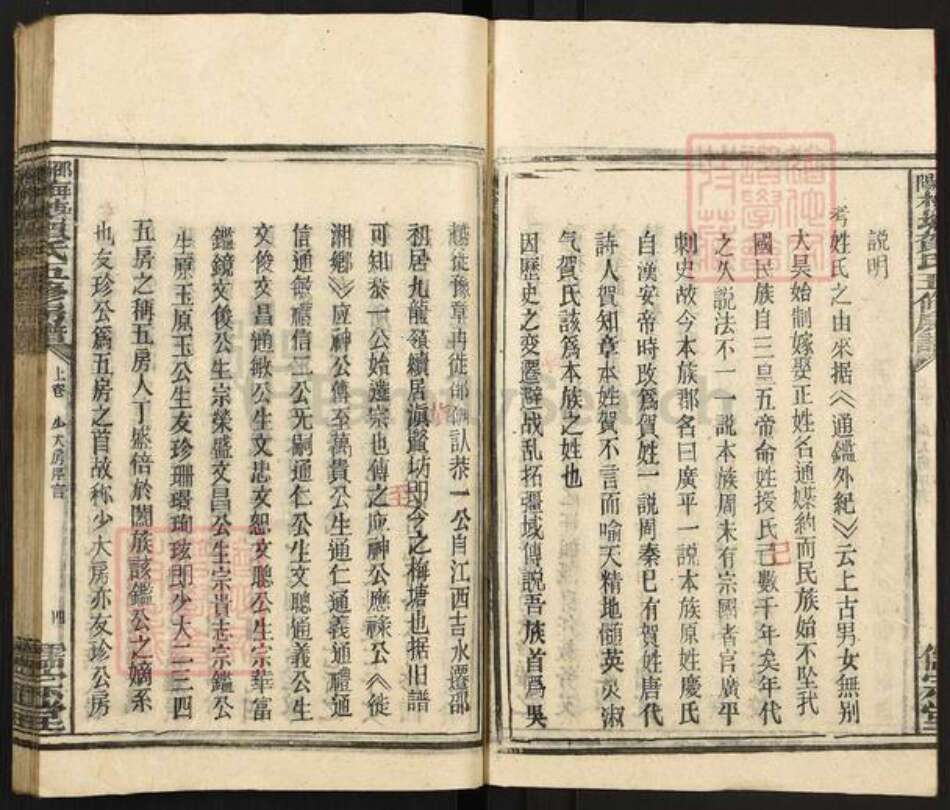 説明
考姓氏之由來据《通鑑外紀》云上古男女無别
大昊始制嫁娶正姓名通媒約而民族始不墜我
國民族自三皇五帝命姓授氏已數千年矣年代
之久説法不一一説本族周末有宗國者官廣平
刺史故今本族郡名曰廣平一説本族原姓慶氏
自漢安帝時改爲賀姓一説周秦已有賀姓唐代
詩人賀知章本姓賀不言而喻天精地髓英灵淑
气賀氏該爲本族之姓也
因歷史之変遷避战乱拓彊域傳説吾族首爲吳
越徙豫章冉徙邵伯訫恭一公自江西吉水遷邵
祖居九龍嶺續居滇賢坊即今之梅塘也据旧譜
可知㳟一公始遷宗也傳之應神公應祿公《徙
湘鄉》應神公傳至萬貴公生通仁通義通禮通
信通敏禮信二公无嗣通仁公生文聰通義公生
文俊文昌通敏公生文忠文恕文聰公生宗華富
鑑鏡文俊公生宗榮盛文昌公生宗貴志宗鑑公
生原玉原玉公生友珍珊環珣琰即少大二三四
五房之稱五房人丁盛倍於闔族該鑑公之嫡系
也友珍公爲五房之首故称少大房亦友珍公房
上卷
少大房序言
四